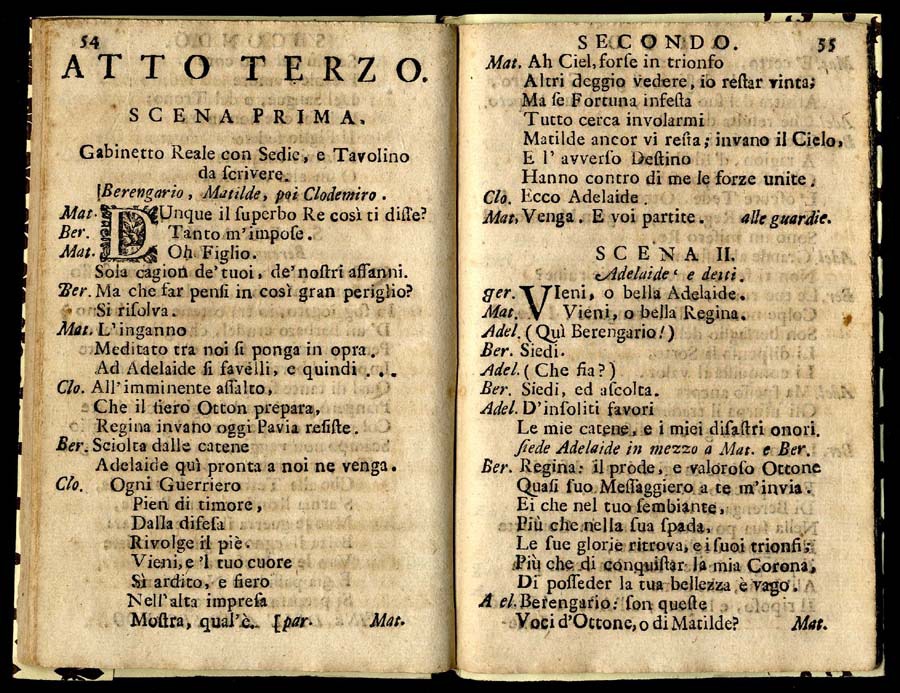 54
ATTO TERZO.
SCENA PRIMA.
Gabinetto Reale con Sedie, e Tavolino
da scrivere.
[Berengario, Matilde, poi Clodemiro.
Mat. DUnque il superbo Re così ti disse?
Ber. Tanto m'impose.
Mat. Oh Figlio.
Sola cagion de'tuoi, de'nostri affanni.
Ber. Ma che far pensi in così gran periglio?
Si risolva.
Mat. L'inganno
Meditato tra noi si ponga in opra.
Ad Adelaide si favelli, e quindi..
Clo. All'imminente assalto,
Che il fiero Otton prepara,
Regina invano oggi Pavia resiste.
Ber. Sciolta dalle catene
Adelaide quì pronta a noi ne venga.
Clo. Ogni Guerriero
Pien di timore,
Dalla difesa
Rivolge il piè.
Vieni, e 'l tuo cuore
Sì ardito, e fiero
Nell'alta impresa
Mostra, qual'è. [par. Mat.
SECONDO. 55
Mat. Ah Ciel, forse in trionfo
Altri deggio vedere, io restar vinta;
Ma se Fortuna infesta
Tutto cerca involarmi
Matilde ancor vi resta; invano il Cielo,
E l' avverso Destino
Hanno contro di me le forze unite.
Clo. Ecco Adelaide.
Mat. Venga. E voi partite. alle guardie.
SCENA II.
Adelaide e detti.
Ber. VIeni, o bella Adelaide.
Mat. Vieni, o bella Regina.
Adel. (Quì Berengario!)
Ber. Siedi.
Adel. (Che fia?)
Ber. Siedi, ed ascolta.
Adel. D'insoliti favori
Le mie catene, e i miei disastri onori.
siede Adelaide in mezzo a Mat. e Ber.
Ber. Regina: il prode, e valoroso Ottone
Quasi suo Messaggiero a te m'invia.
Ei che nel tuo sembiante,
Più che nella sua spada,
Le sue glorie ritrova, e i suoi trionfi;
Più che di conquistar la mia Corona,
Di posseder la tua bellezza è vago.
A el. Berengario: son queste
Voci d'Ottone, o di Matilde? Mat.